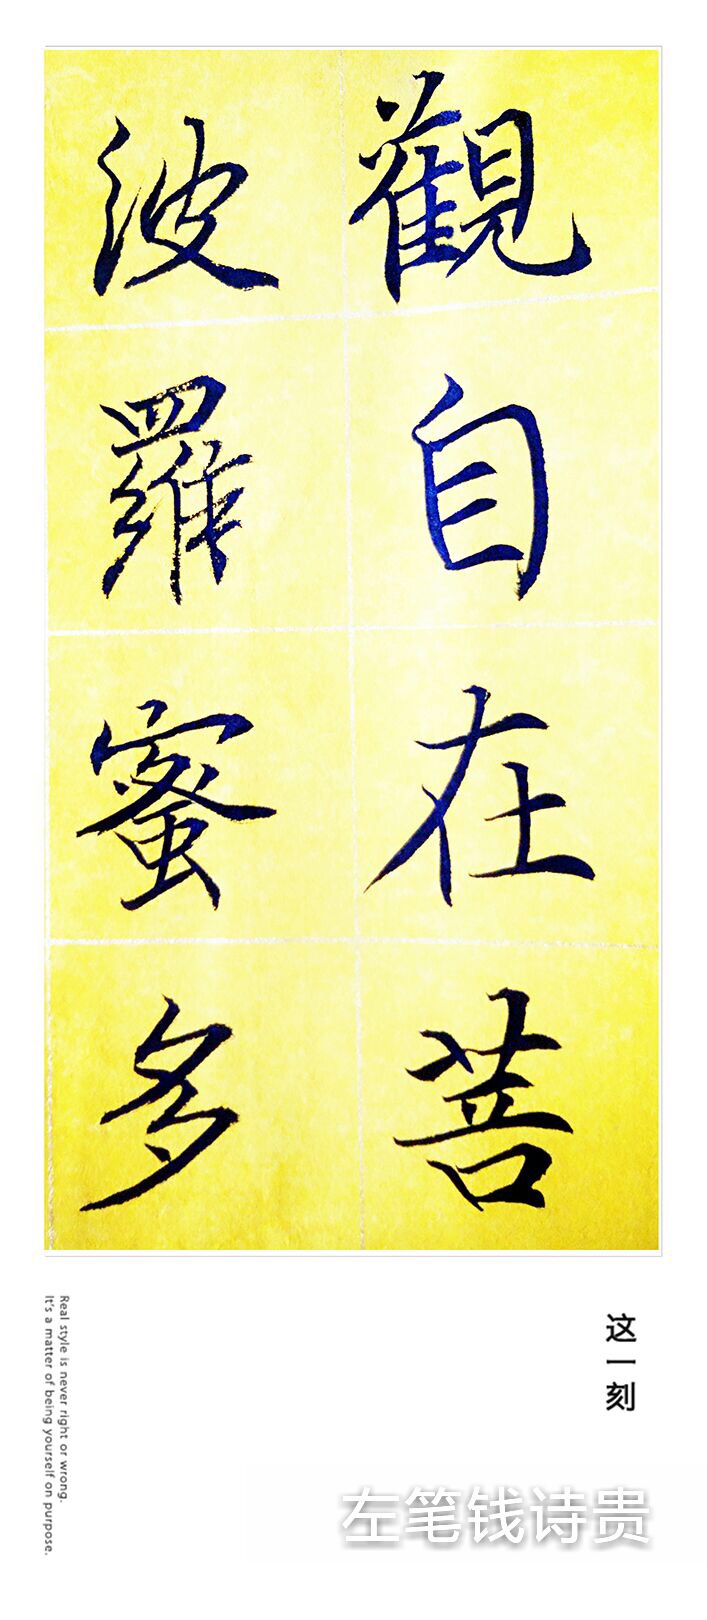 觀自在菩
波羅蜜多
这一刻
Real style is never right or wrong.
It's a matter of being yourself on purpose.
左笔钱诗贵